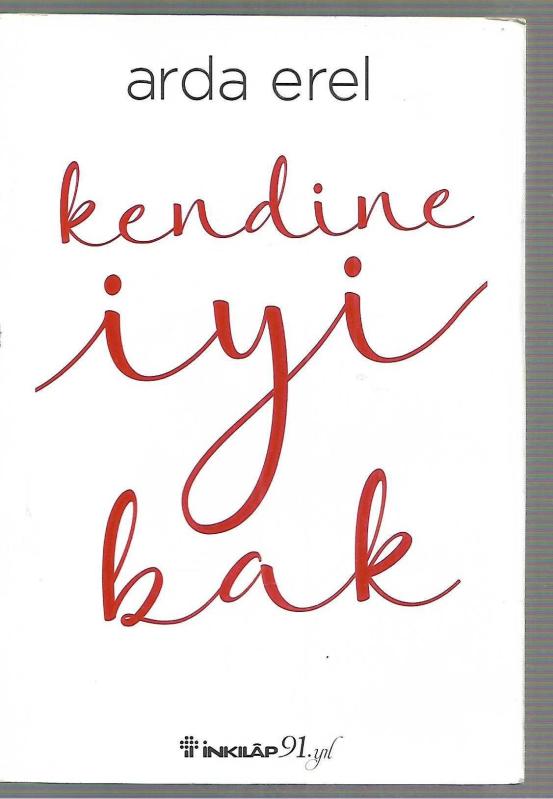 arda erel
kendine
iyi
bak
iNKILÂP 91.yıl